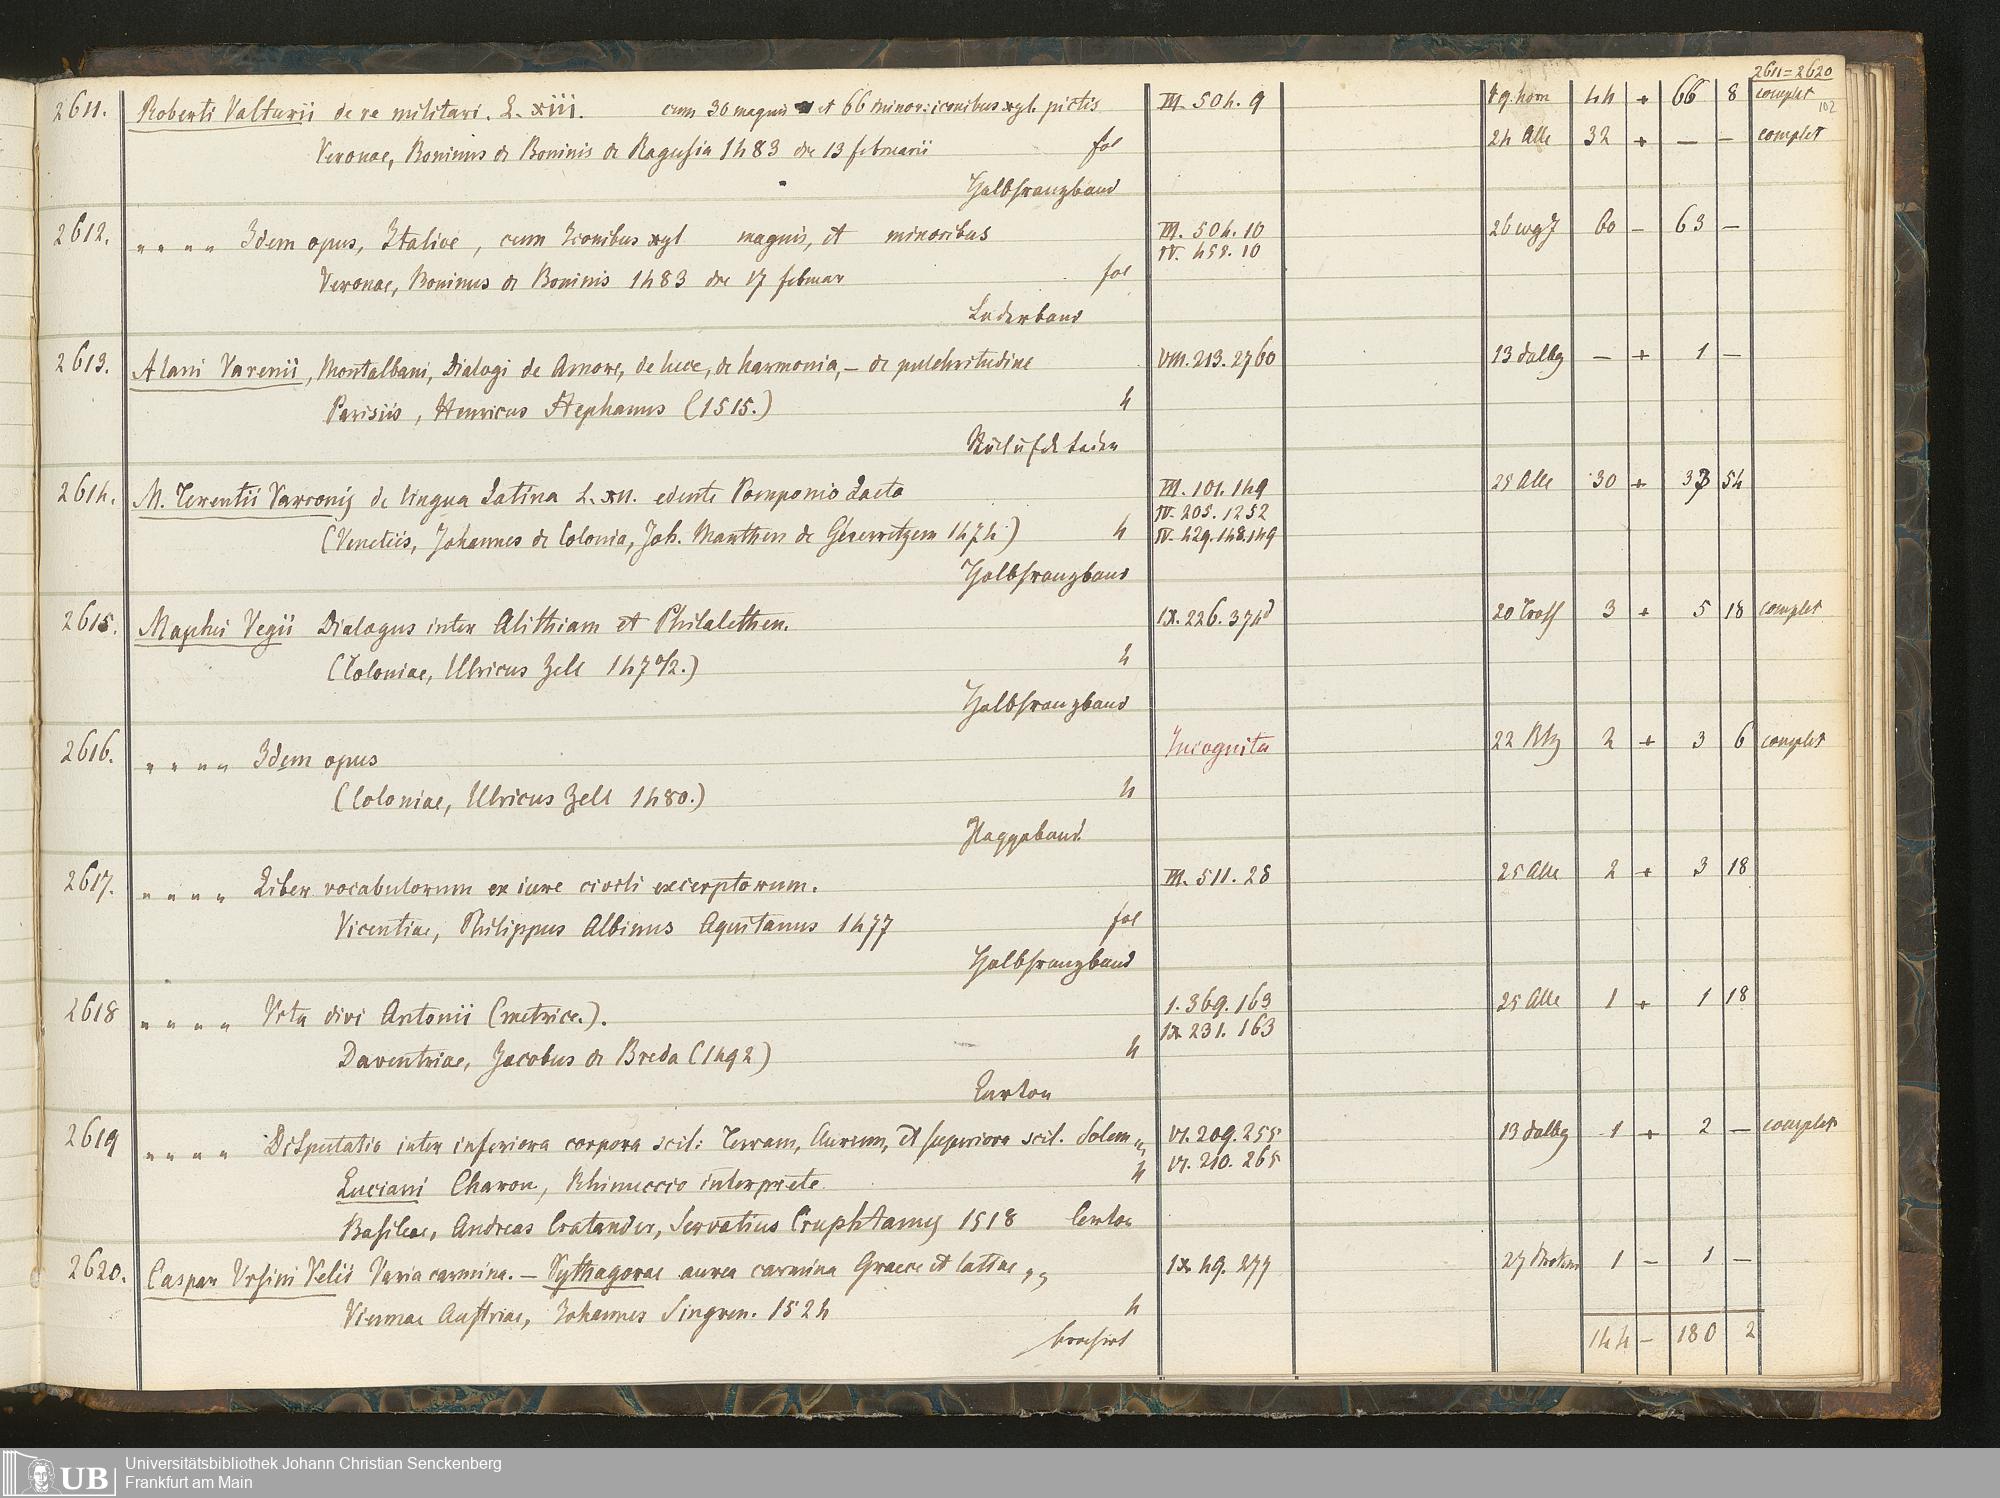 2611=2620
102
2611. Roberti Valturii de re militari. L. xiii. cum 30 magnis et 66 minor: iconibus xyl. pictis III. 504. 9 44 + 66 8 complet
Veronae, Boninus de Boninis de Ragusia 1483 die 13 februarii fol 24 Alle 32 + — — complet
Halbfranzband
2612. „ „ „ „ Idem opus, Italice, cum Iconibus xyl magnis, et minoribus III. 504. 10 60 – 63 –
IV. 458. 10
Veronae, Boninus de Boninis 1483 die 17 februar fol
Lederband
2613. Alani Varenii, Montalbani, Dialogi de Amore, de luce, de harmonia, – de pulchritudine VIII. 213. 2760 13 dalbg — + 1 —
Parisiis, Henricus Stephanus (1515.) 4
2614. M. Terentii Varronis de lingua Latina L. edente Pomponio Laeto III. 101. 149 25 Alle 30 + 33 54
IV. 205. 1252
(Venetiis, Johannes de Colonia, Joh. Manthen de Gherretzem 1474) 4 IV. 429. 148.149
Halbfranzband
2615. Maphei Vegii Dialogus inter Alithiam et Philalethen. IX. 226. 374d 20 Tross 3 + 5 18 complet
(Coloniae, Ulricus Zell 1470/2.) 4
Halbfranzband
2616. „ „ „ „ Idem opus Incognita 2 + 3 6 complet
(Coloniae, Ulricus Zell 1480.) 4
2617. „ „ „ „ Liber vocabulorum ex iure civili excerptorum. III. 511. 28 25 Alle 2 + 3 18
Vicentiae, Philippus Albinus Aquitanus 1477 fol
Halbfranzband
2618 „ „ „ „ Vita divi Antonii (metrice.). I. 369. 163 25 Alle 1 + 1 18
IX 231. 163
Daventriae, Jacobus de Breda (1492) 4
Carton
2619 „ „ „ „ Disputatio inter inferiora corpora scil: Terram, Aurum, et superiora scil. Solem „ VI. 209. 255 13 dalbg 1 + 2 — complet
Luciani Charon, Rhinuccio interprete 4 VI. 210. 265
Basileae, Andreas Cratander, Servatius Cruphtanus 1518 Carton
2620. Caspar Ursini Velii Varia carmina. – Pythagorae aurea carmina Graece et latine „ IX. 49. 277 1 – 1 —
Viennae Austriae, Johannes Singren. 1524 4
broschirt
144 – 180 2
Universitätsbibliothek Johann Christian Senckenberg
UB
Frankfurt am Main